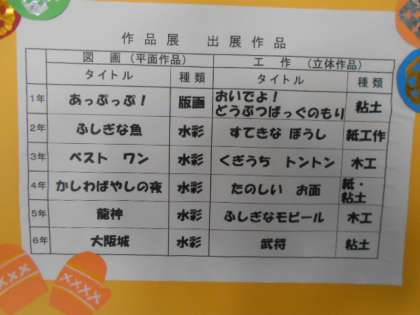 作品展 出展作品
図画（平面作品） 工作 （立体作品）
タイトル 種類 タイトル 種類
1年 あっぷっぷ！ 版画 おいでよ！ どうぶつばっぐのもり 粘土
2年 ふしぎな魚 水彩 すてきな ぼうし 紙工作
3年 ベスト ワン 水彩 くぎうち トントン 木工
4年 かしわばやしの夜 水彩 たのしい お面 紙・ 粘土
5年 龍神 水彩 ふしぎなモビール 木工
6年 大阪城 水彩 武将 粘土